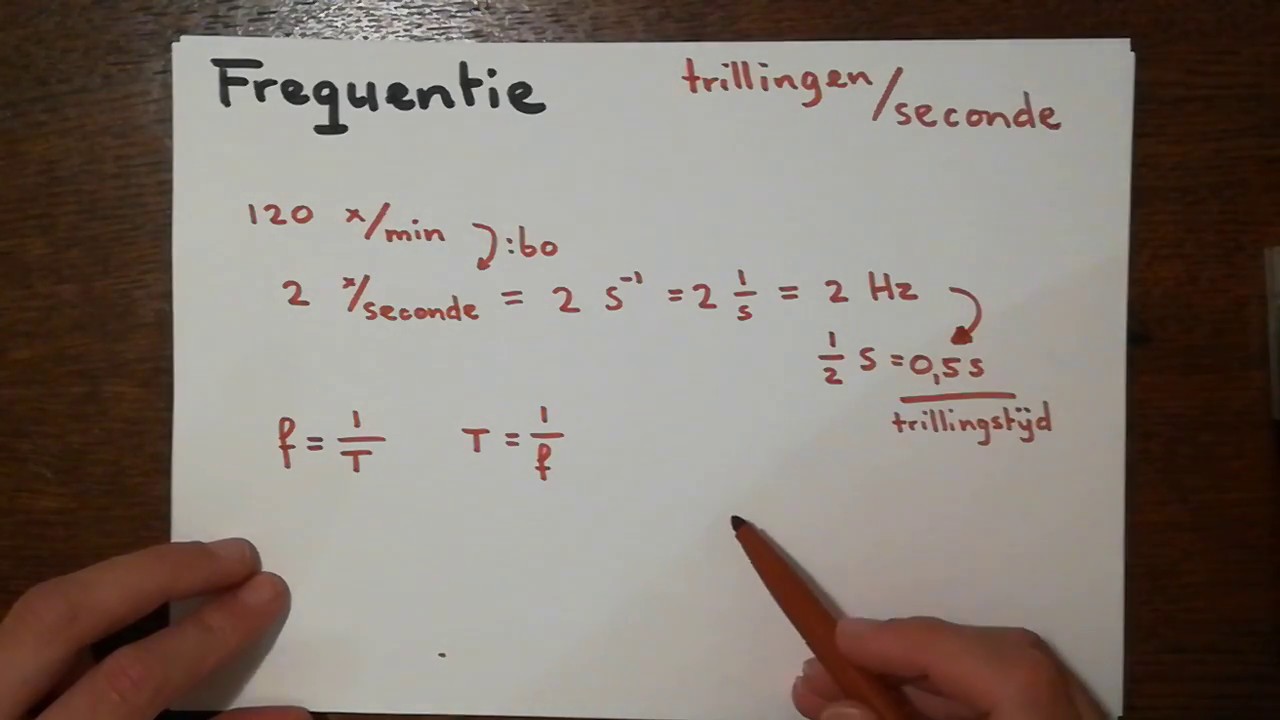 Frequentie
trillingen/seconde
120 x/min
:60
2 x/seconde = 2 s⁻¹ = 2 1/s = 2 Hz
1/2 s = 0,5 s
trillingstijd
f = 1/T
T = 1/f